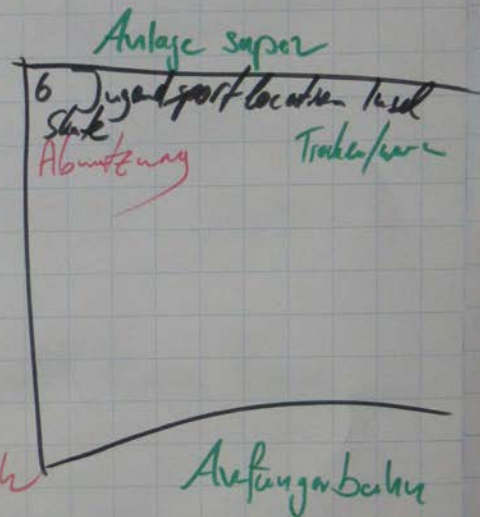 Anlage super
6 Jugendsport location Insel
Skate
Abnutzung Trocken/warm
Anfängerbahn